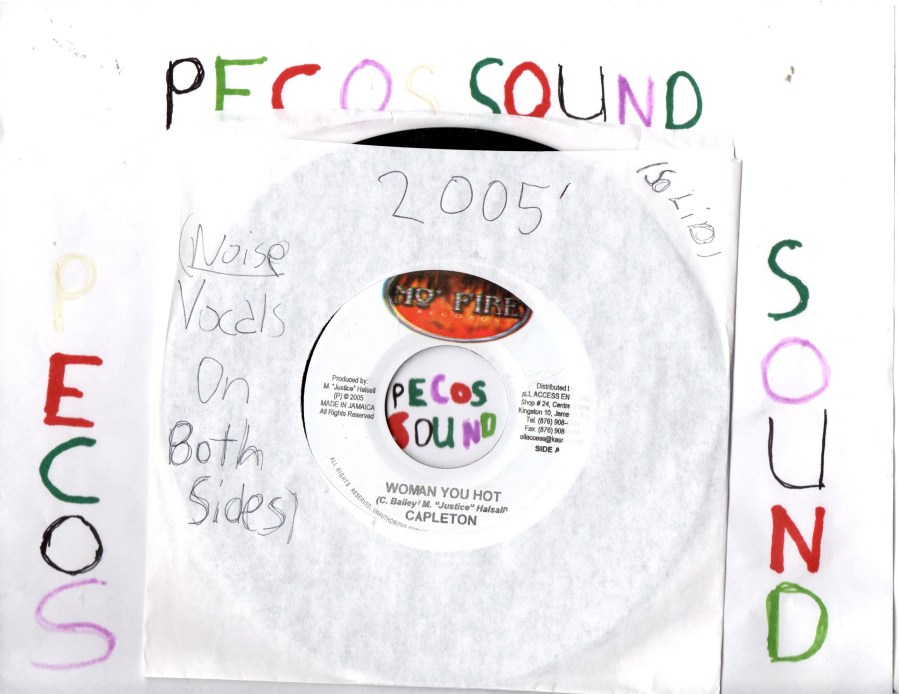 PECOS SOUND
2005'
(SOLiD)
(Noise
Vocals
On
Both
Sides)
MO' FIRE
RECORDS
Produced by:
M. "Justice" Halsall
(P) © 2005
MADE IN JAMAICA
All Rights Reserved
Distributed
ALL ACCESS EN
Shop # 24,
Kingston 10,
Tel. (876) 908-
Fax. (876) 908
SIDE A
PECOS
SOUND
WOMAN YOU HOT
(C. Bailey/ M. "Justice" Halsall)
CAPLETON
ALL RIGHTS RESERVED. UNAUTHORIZED
PECOS
SOUND